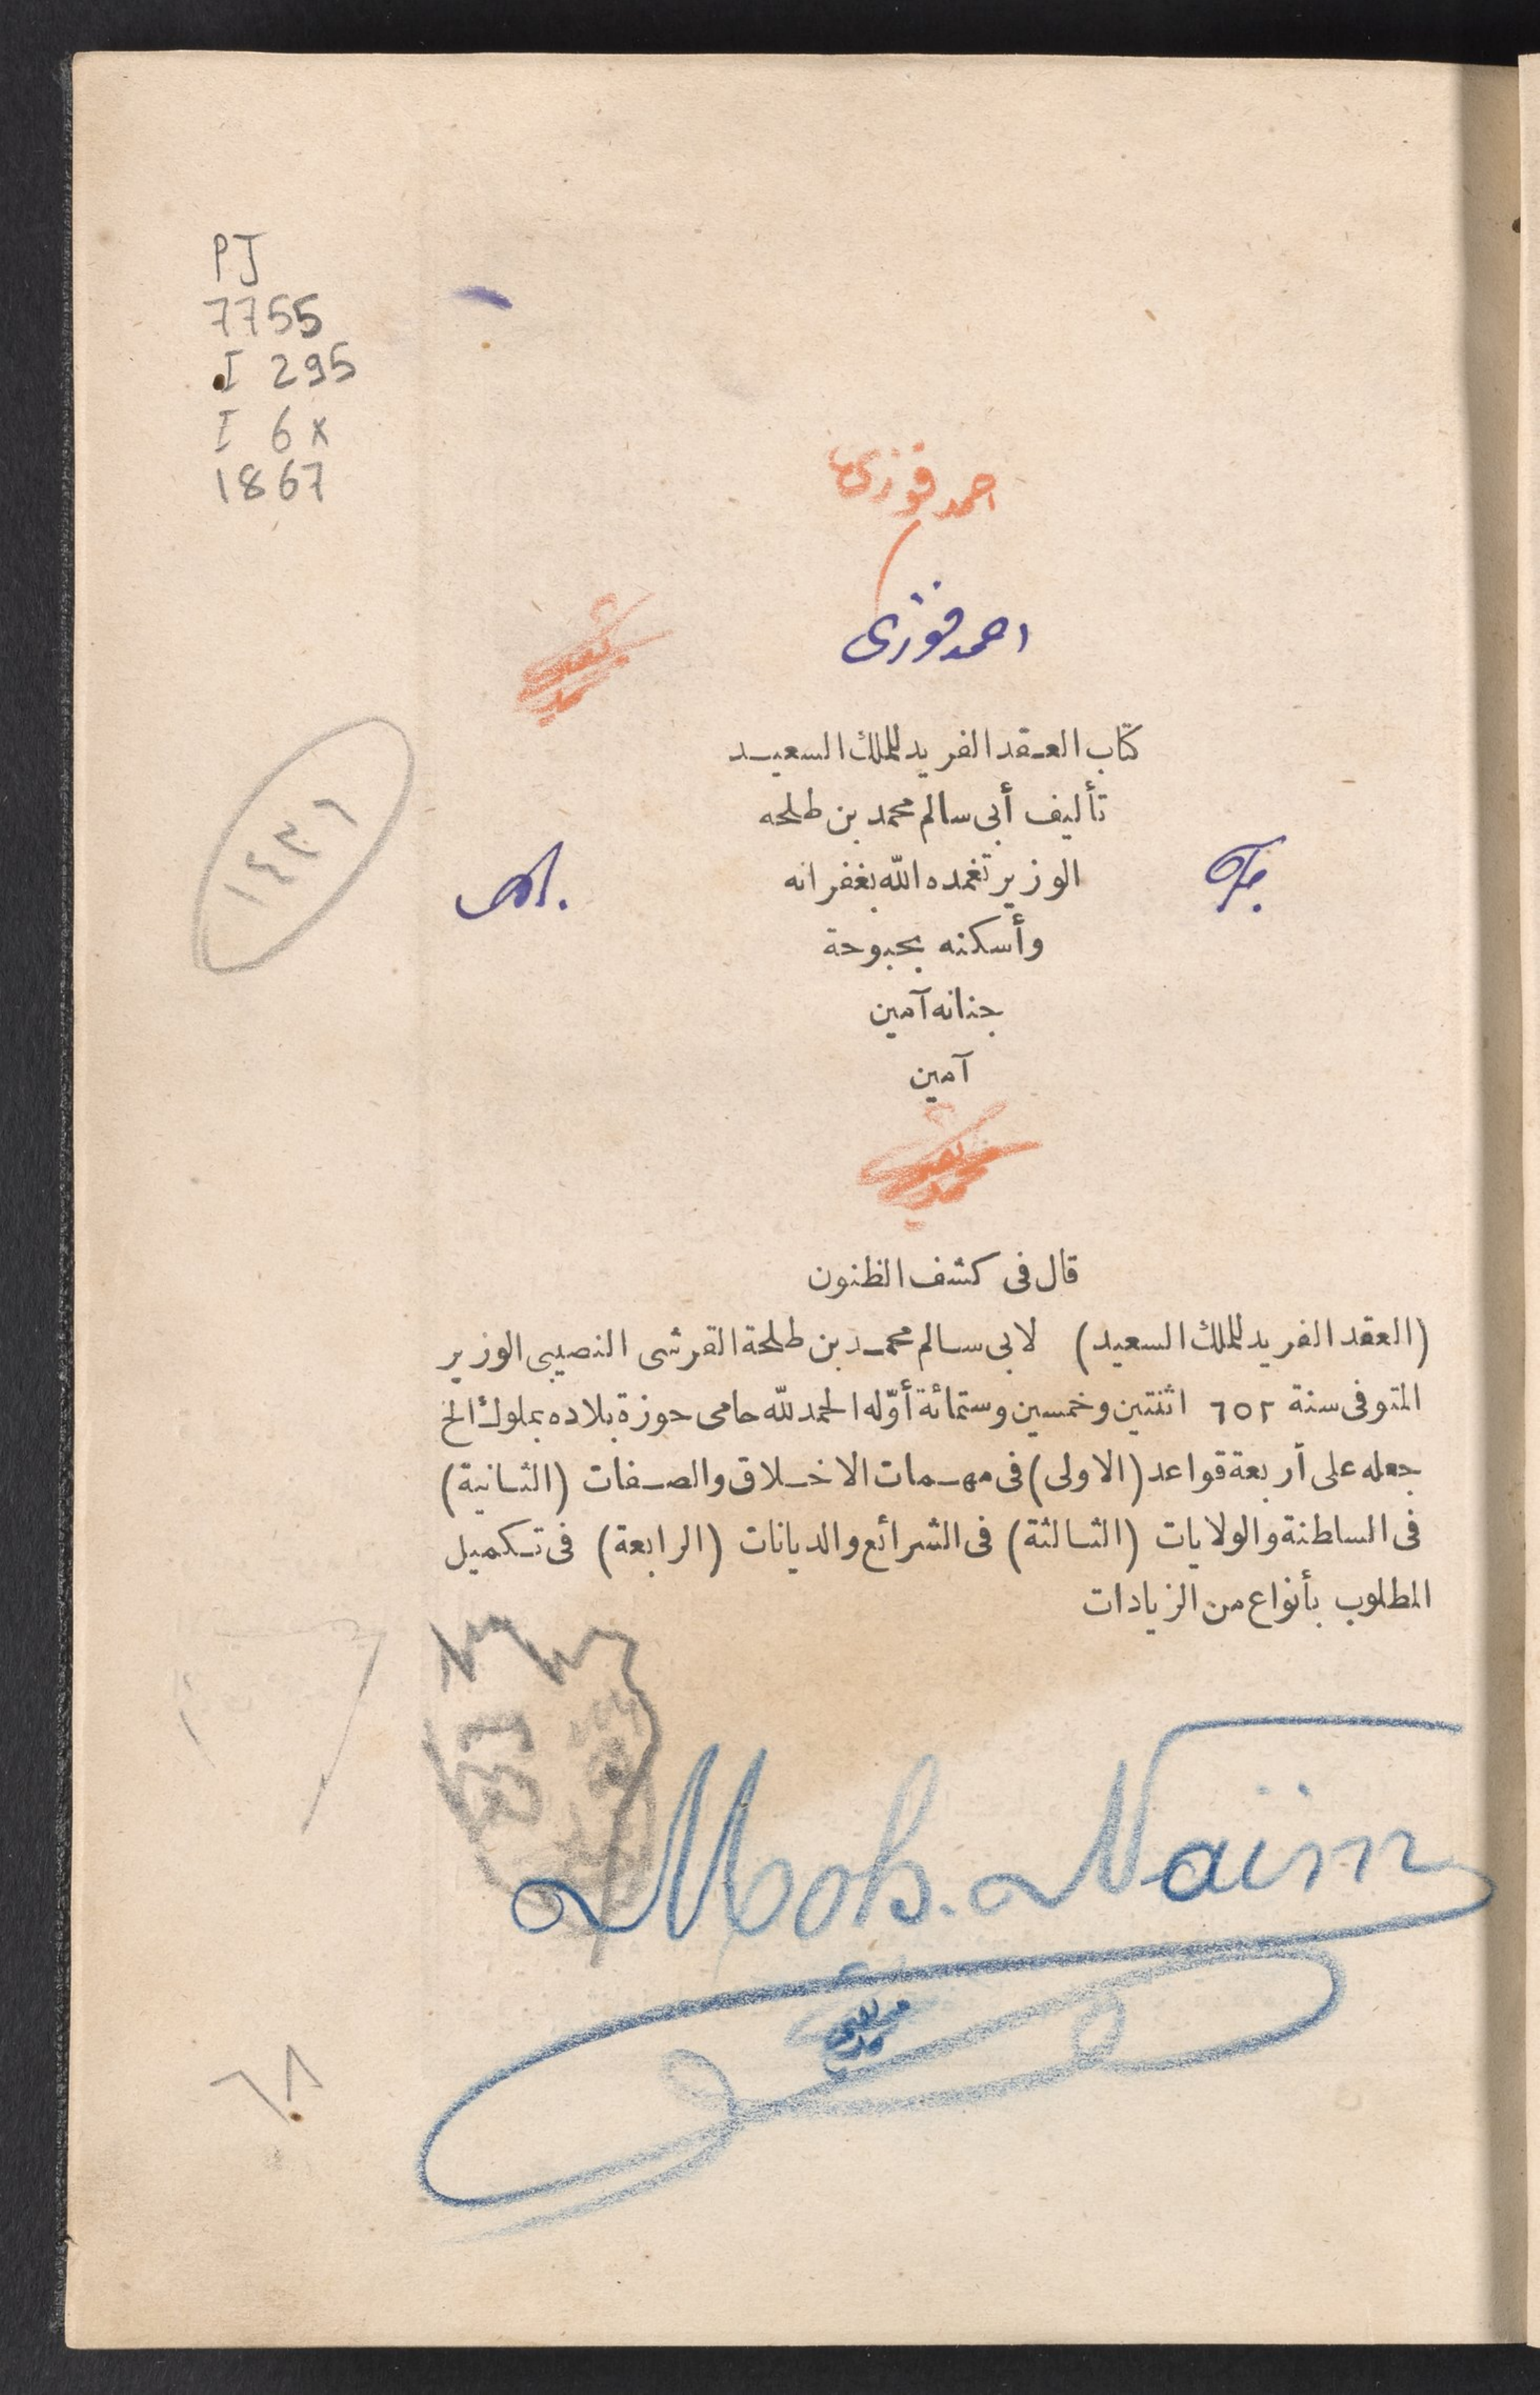 PJ
7755
I 295
I 6x
1867
احمد فوزى
احمد فوزى
كتاب العقد الفريد للملك السعيد
تأليف أبى سالم محمد بن طلحه
١٤٣٦
الوزير تغمده الله بغفرانه
وأسكنه بحبوحة
جنانه آمين
آمين
قال فى كشف الظنون
(العقد الفريد للملك السعيد) لابى سالم محمد بن طلحة القرشى النصيبى الوزير
المتوفى سنة ٦٥٢ اثنتين وخمسين وستمائة أوّله الحمد لله حامى حوزة بلاده بملوك الخ
جعله على أربعة قواعد (الاولى) فى مهمات الاخلاق والصفات (الثانية)
فى السلطنة والولايات (الثالثة) فى الشرائع والديانات (الرابعة) فى تكميل
المطلوب بأنواع من الزيادات
Moh. Naïm
٦٨